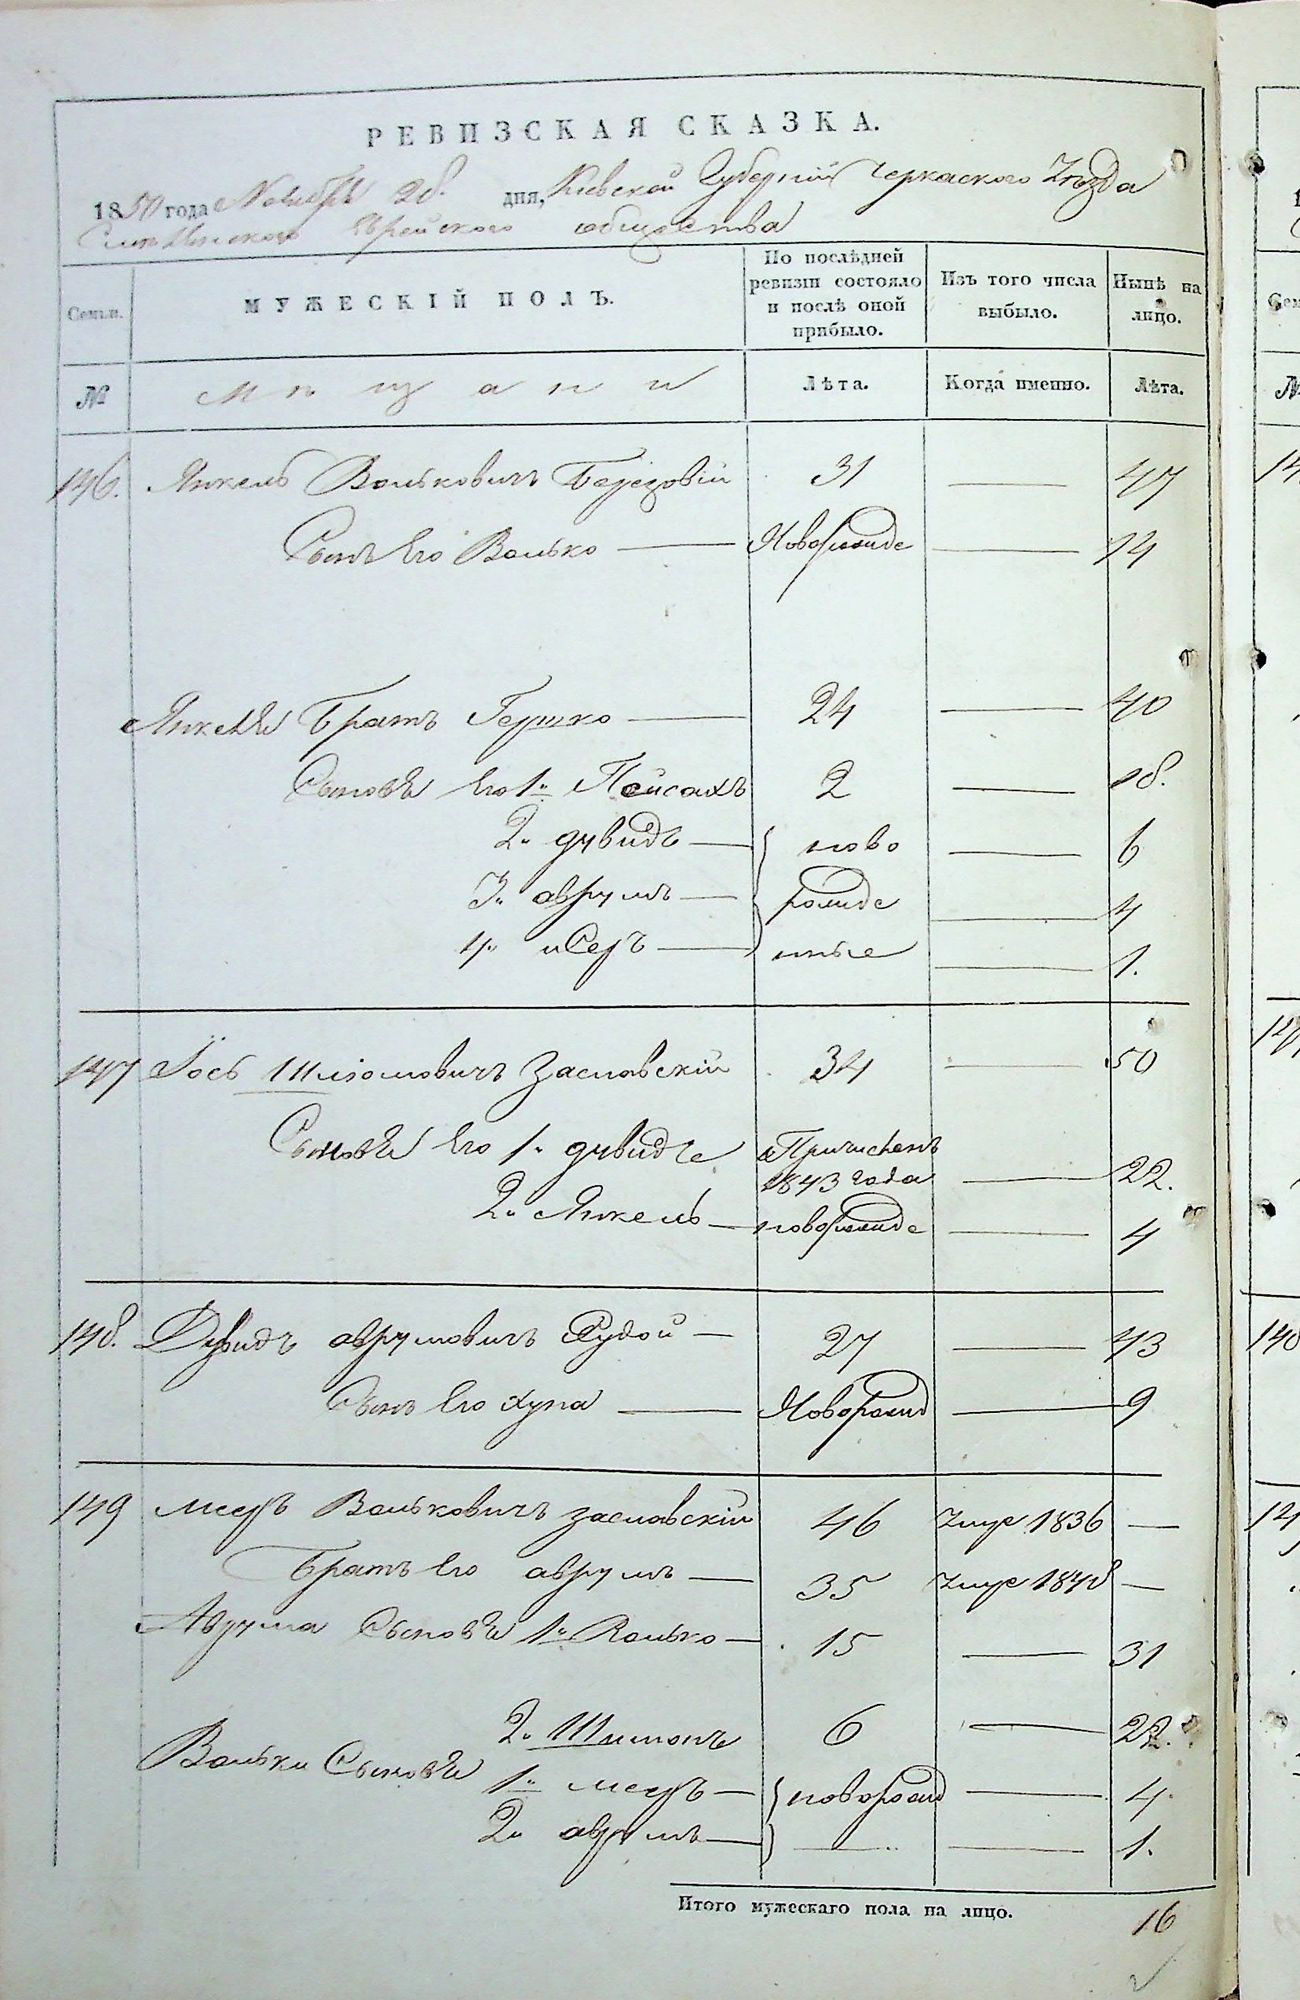 РЕВИЗСКАЯ СКАЗКА.
1850 года Ноября 28. дня, Кіевской Губерніи Черкаского Уѣзда
Еврейского общества
Семьи.
МУЖЕСКІЙ ПОЛЪ.
По послѣдней ревизіи состояло и послѣ оной прибыло.
Изъ того числа выбыло.
Нынѣ на лицо.
№
Мѣщани
Лѣта.
Когда именно.
Лѣта.
146. Янкель Волькович Березовій 31 — 47
Сынъ его Волько — Новорожде — 14
Янкеля Братъ Гершко — 24 — 40
Сыновя его 1й Пейсахъ 2 — 18.
2й дувидъ — ново — 6
3й аврумъ — рожде — 4
4й исеръ — нные — 1.
147 Іось Шліомовичъ Заславскій 34 — 50
Сыновя его 1й дувидъ Причисленъ 1843 года — 22.
2й Янкель — новорожде — 4
148. Дувидъ аврумовичъ Худой — 27 — 43
Сынъ его Хуна — Новорожд — 9
149 меръ Вольковичъ заславскій 46 Умре 1836 —
Братъ его аврумъ — 35 Умре 1848 —
Аврума Сыновя 1й Волько — 15 — 31
2й Шимонъ 6 — 22.
Вольки Сыновя 1й меръ — новорожд — 4
2й аврумъ — — — 1.
Итого мужескаго пола на лицо. 16